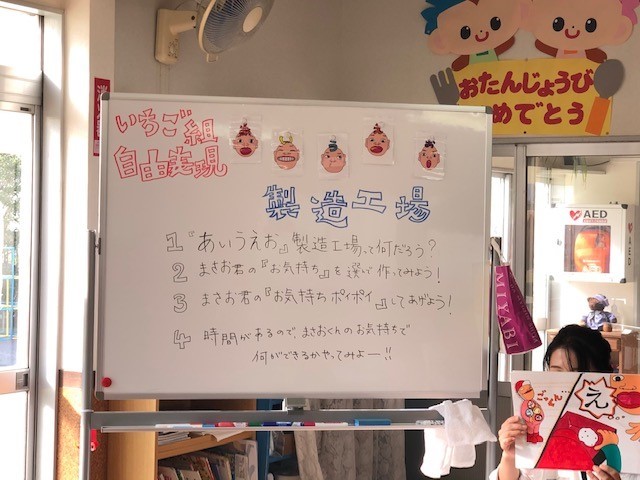 おたんじょうび
おめでとう
いちご組
自由表現
製造工場
1 『あいうえお』製造工場って何だろう?
2 まさお君の『お気持ち』を選び作ってみよう!
3 まさお君の『お気持ちポイポイ』してあげよう!
4 時間があるので、まさおくんのお気持ちで
何ができるかやってみよー!!
AED
AED
MIYABI
え